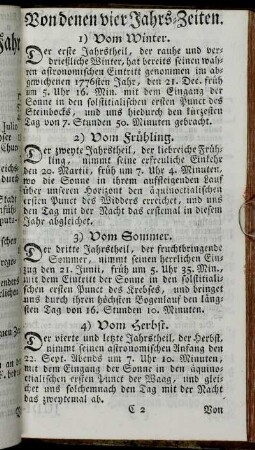 Von denen vier Jahrs-Zeiten.
1) Vom Winter.
Der erste Jahrstheil, der rauhe und ver-
drießliche Winter, hat bereits seinen wah-
ren astronomischen Eintritt genommen im ab-
gewichenen 1776sten Jahr, den 21. Dec. früh
um 5. Uhr 16. Min. mit dem Eingang der
Sonne in den solstitialischen ersten Punct des
Steinbocks, und uns hiedurch den kürzesten
Tag von 7. Stunden 50. Minuten gebracht.
2) Vom Frühling.
Der zweyte Jahrstheil, der liebreiche Früh-
ling, nimmt seine erfreuliche Einkehr
den 20. Martii, früh um 7. Uhr 4. Minuten,
wo die Sonne in ihrem aufsteigenden Lauf
über unserm Horizont den äquinoctialischen
ersten Punct des Widders erreichet, und uns
den Tag mit der Nacht das erstemal in diesem
Jahr abgleichet.
3) Vom Sommer.
Der dritte Jahrstheil, der fruchtbringende
Sommer, nimmt seinen herrlichen Ein-
zug den 21. Junii, früh um 5. Uhr 35. Min.,
mit dem Eintritt der Sonne in den solstitiali-
schen ersten Punct des Krebses, und bringet
uns durch ihren höchsten Bogenlauf den läng-
sten Tag von 16. Stunden 10. Minuten.
4) Vom Herbst.
Der vierte und letzte Jahrstheil, der Herbst,
nimmt seinen astronomischen Anfang den
22. Sept. Abends um 7. Uhr 10. Minuten,
mit dem Eingang der Sonne in den äquino-
ctialischen ersten Punct der Waag, und glei-
chet uns solchemnach den Tag mit der Nacht
das zweytemal ab.
C 2 Von